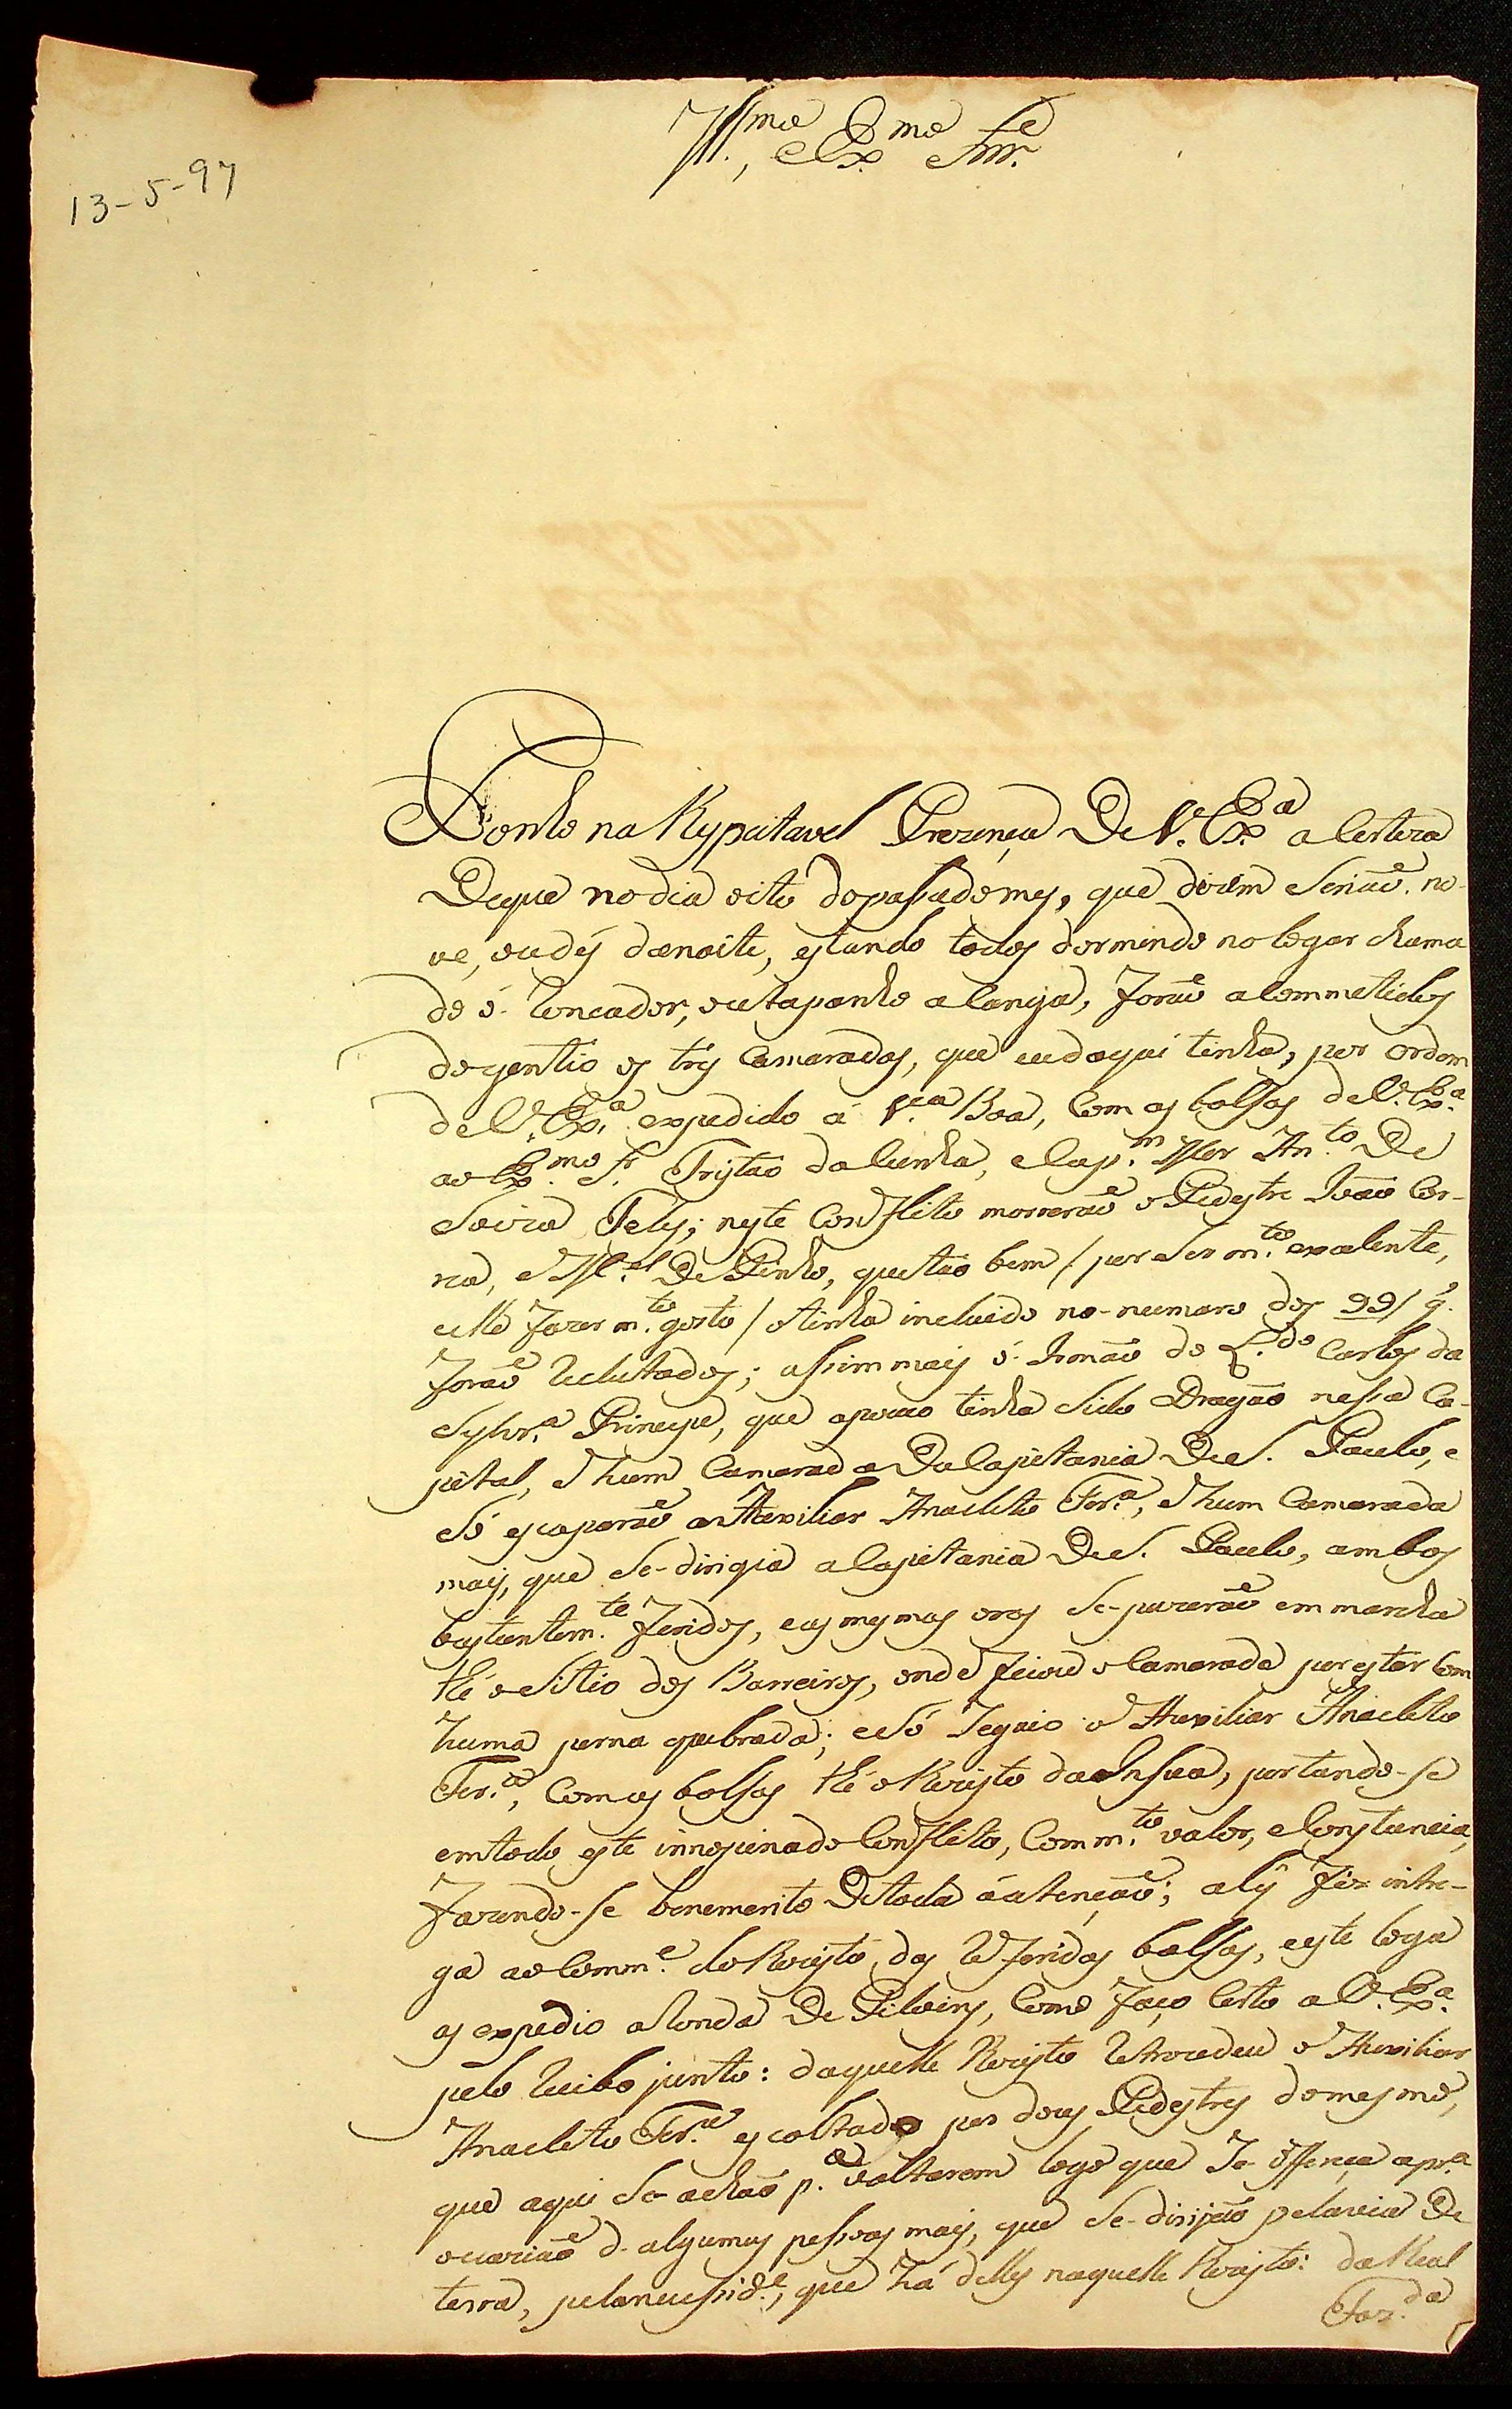 Ill.mo Ex.mo Snr.
13-5-97
Ponho na Respeitavel Prezença De V. Ex.a a Certeza
Deque no dia oito do passado mes, que dizem Serião no-
ve, ou dés da noite, estando todos dormindo no logar chama
do o Roncador, ou tapanho a Canga, forão acommetidos
do gentio os trés Camaradas, que eu daqui tinha, por ordem
de V. Ex.a expedido á V.a Boa, Com as bolsas de V. Ex.a
ao Ex.mo S.r Tristão da Cunha, e Cap.m Mor An.to De
Soiza Teles; neste Conflito morrerão o Pedestre João Cor-
rea, e M.el De Pinho, que tão bem / por Ser m.to exalente,
e lhe fazer m.to gosto / o tinha incluido no numaro dos 99 / q.
forão Reclutados; assim mais o Irmão do L.do Carlos da
Sylvr.a Principe, que apouco tinha Sido Dragão nessa Ca-
pital, e hum Camarada Da Capitania De S. Paulo, e
Só escaparão o Auxiliar Anacleto Fer.a, e hum Camarada
mais, que Se-dirigia a Capitania De S. Paulo, ambos
bastantem.te feridos, e as mesmas oras Se-puzerão em marcha
thé o Sitio dos Barreiros, onde ficou o Camarada por estar Com
huma perna quebrada; e Só Seguio o Auxiliar Anacleto
Fer.a, Com as bolsas thé o Rezisto da Insua, portando-se
em todo este innopinado Conflito, Com m.to valor, e Constancia,
fazendo-se benemerito De toda a atenção; aly fez intre-
ga ao Comm.e do Rezisto, das Referidas bolsas, e este logo
as expedio a Ronda De Piloins, Como faço Certo a V. Ex.a
pelo Recibo junto: daquelle Rezisto Retrocedeu o Auxiliar
Anacleto Fer.a escoltado por dous Pedestres do mesmo,
que aqui Se-achão p.a voltarem logo que Se-offereça a pr.a
ocazião d-algumas pessoas mais, que Se-dirijão pela via De
terra, pela necessid.e, que há delles naquelle Rezisto: da Real
Faz.da